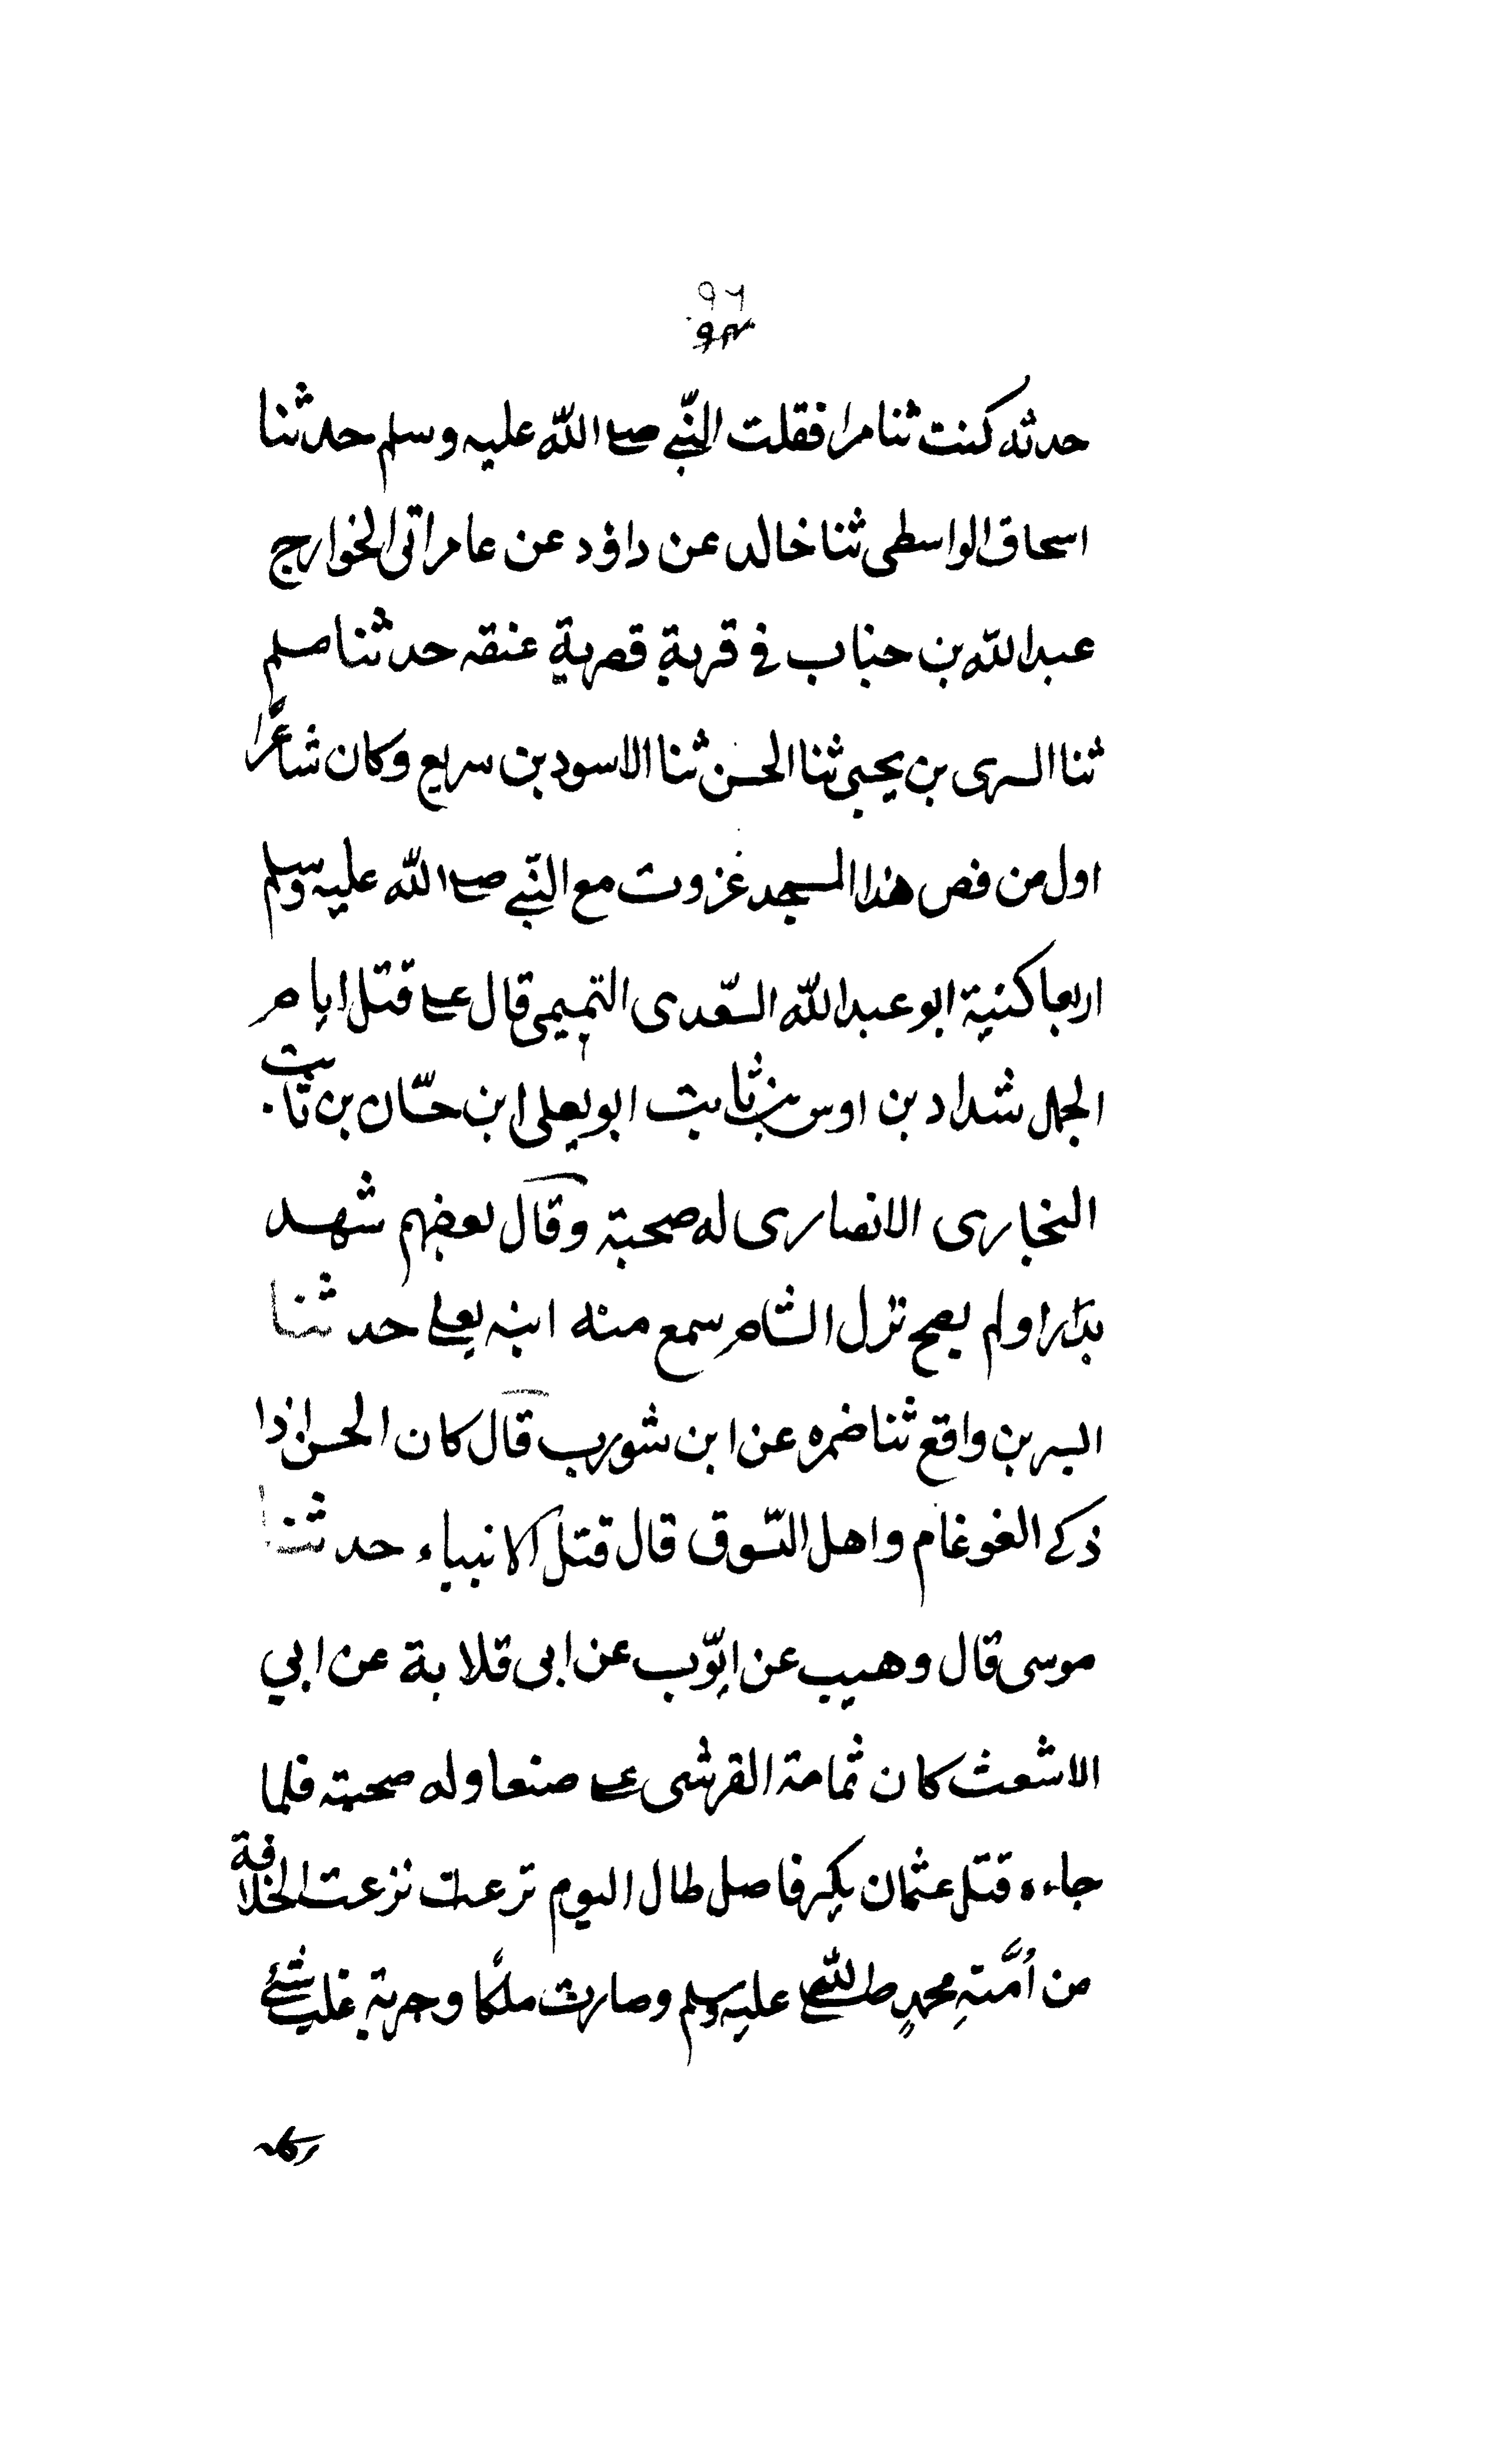 ٩٦
حدثه كنت ثنا مرا فقلت النّبي صلى الله عليه وسلم حدثنا
اسحاق الواسطى ثنا خالد عن داؤد عن عامر اتى الخوارج
عبد الله بن حناب فى قرية قصرية عنقه حدثنا مسلم
ثنا السرى بن يحيى ثنا الحسن ثنا الاسود بن سريع وكان شاعرًا
اول من قص هذا المسجد غزوت مع النّبي صلى الله عليه وسلم
اربعا كنية ابو عبد الله السّعدى التميمى قال على قتل ايام
الجمل شداد بن اوس بن ثابت ابو يعلى ابن حسّان بن ثابت
النخارى الانصارى له صحبة وقال بعضهم شهد
بدرًا ولم يصح نزل الشام سمع منه ابنه يعلى حدثنا
البسر بن واقع ثنا ضمره عن ابن شورب قال كان الحسن اذا
ذكر الغوغام واهل السّوق قال قتل الانبياء حدثنا
موسى قال وهيب عن ايّوب عن ابى قلابة عن ابي
الاشعث كان ثمامة القرشى على صنعا وله صحبته فلما
جاءه قتل عثمان بكى فاصل طال اليوم ترعت نزعت الخلافة
من أُمّتِه محمدٍ صلى الله عليه وسلم وصارت ملكًا وجرية غلب شئى